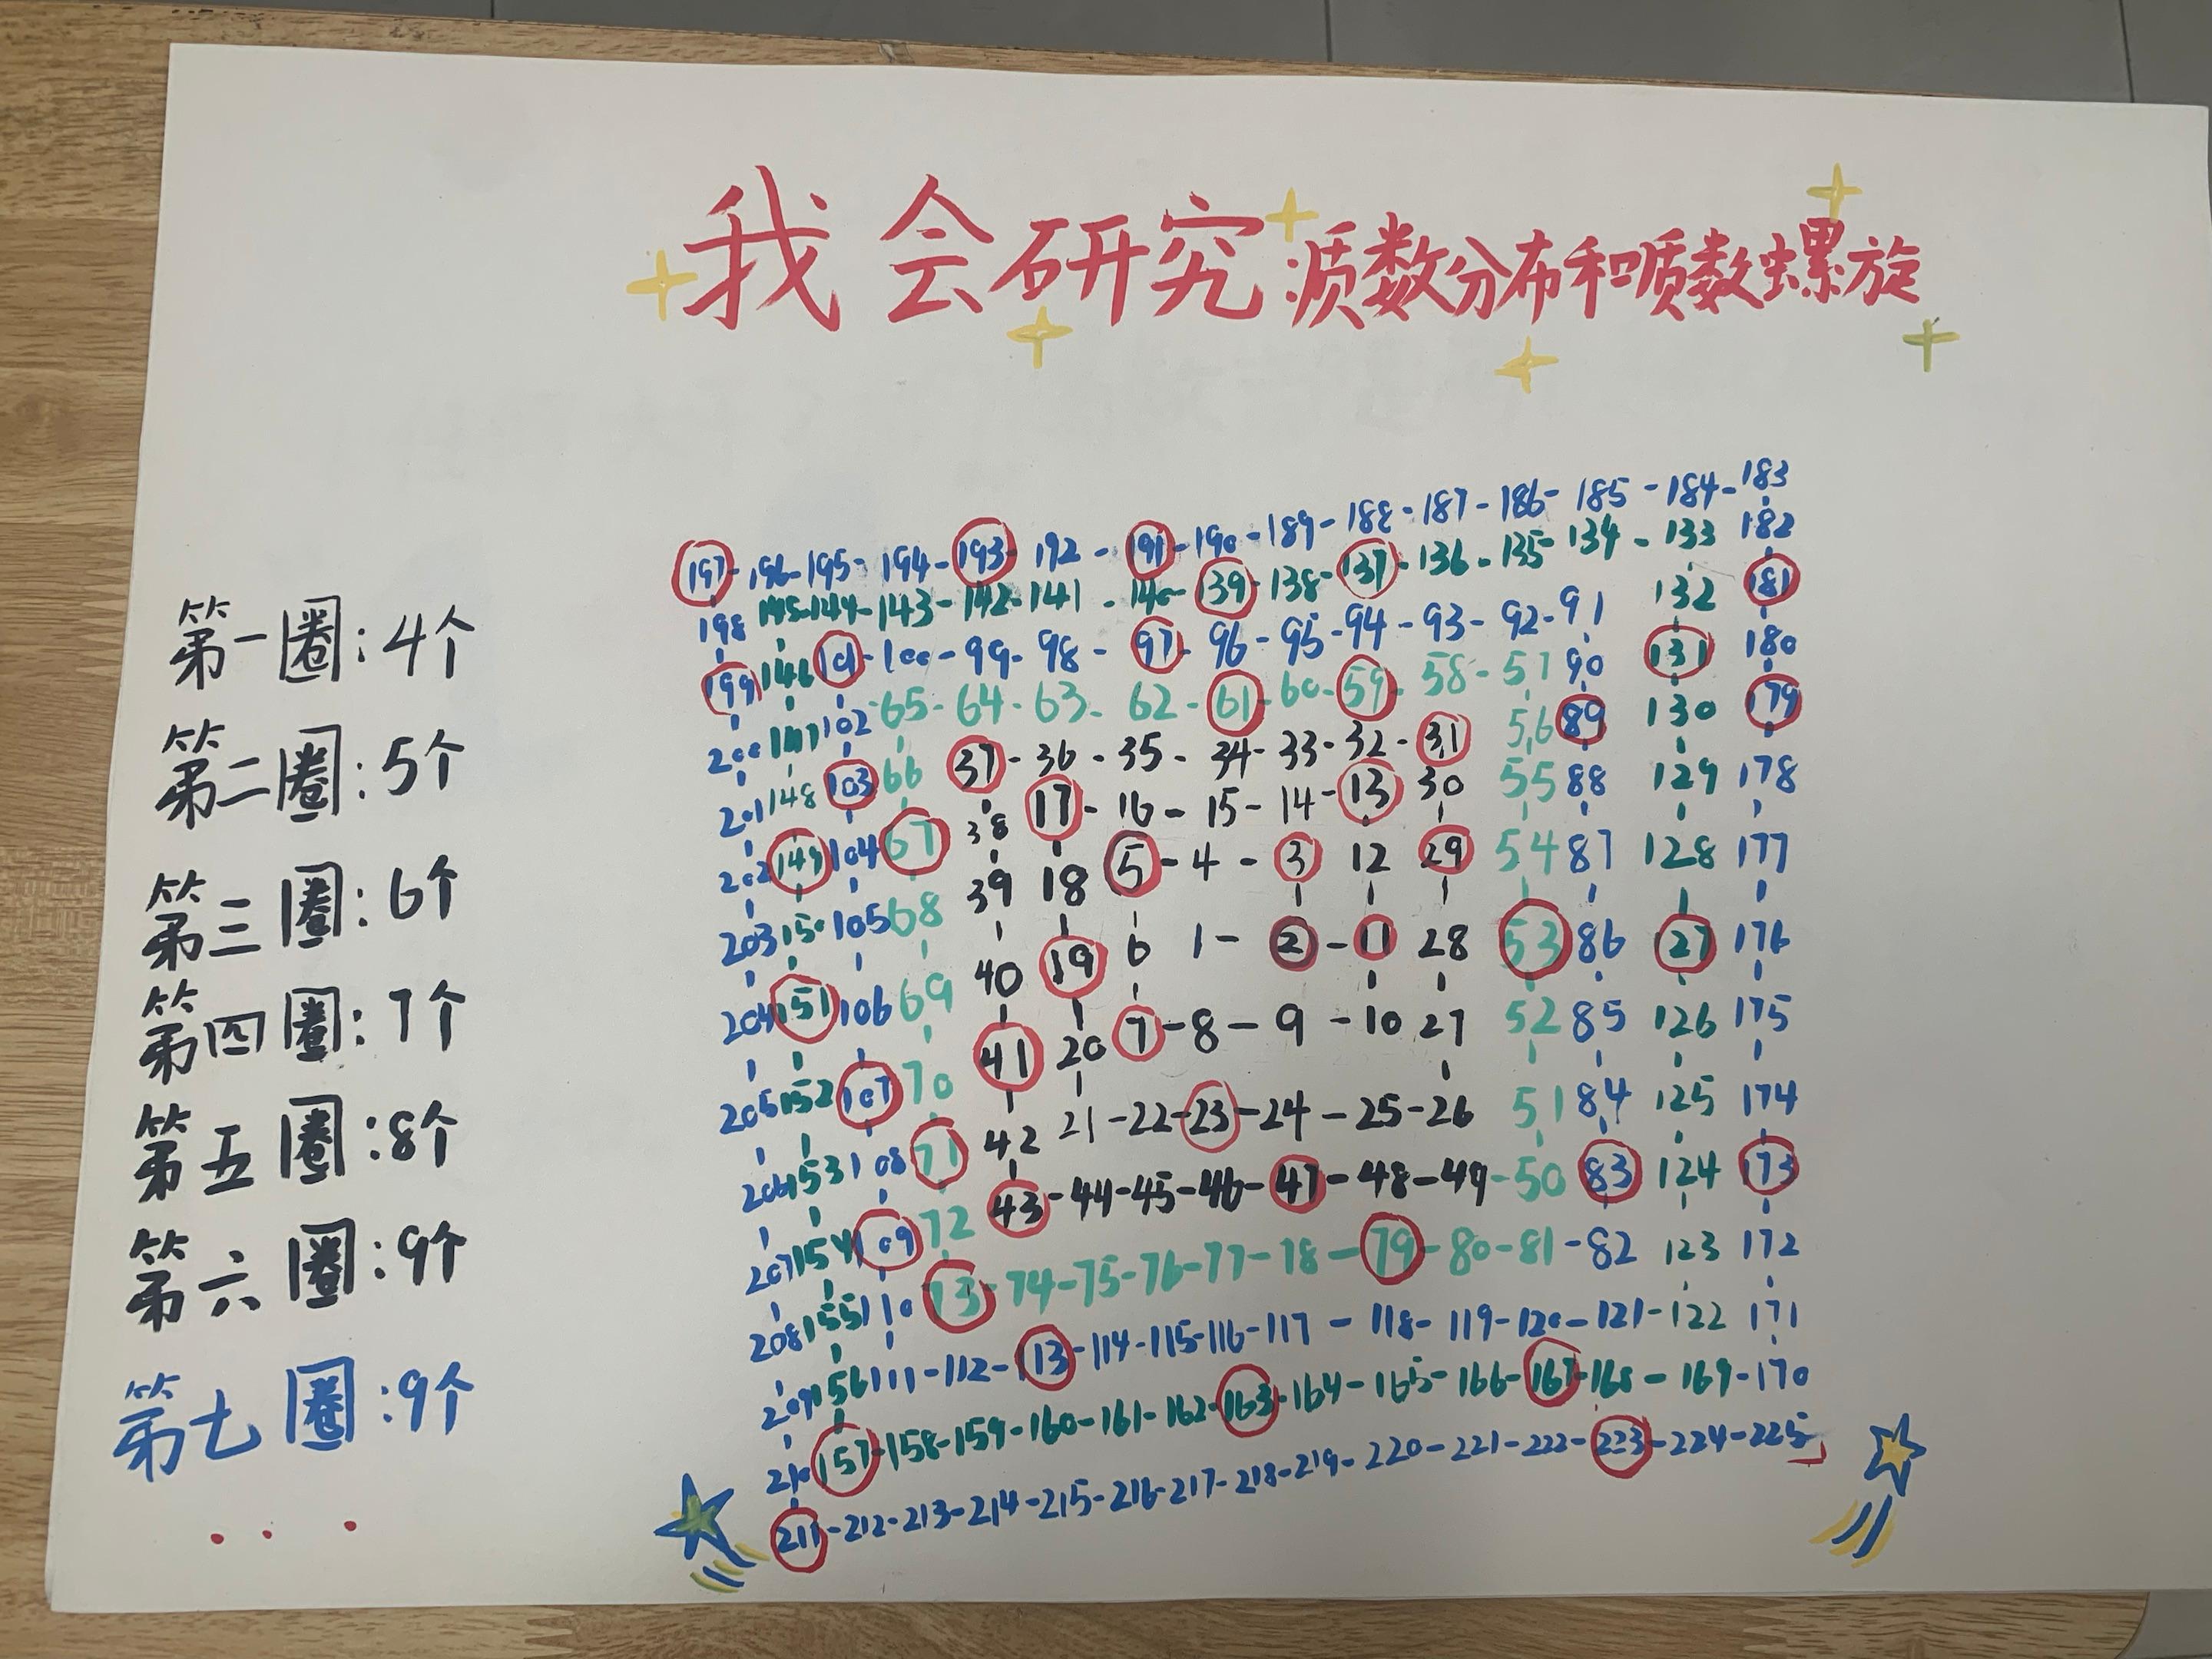 我会研究:质数分布和质数螺旋
第一圈:4个
第二圈:5个
第三圈:6个
第四圈:7个
第五圈:8个
第六圈:9个
第七圈:9个
...
197-196-195-194-193-192-191-190-189-188-187-186-185-184-183
198 145-144-143-142-141-140-139-138-137-136-135-134-133 182
199 146 101-100-99-98-97-96-95-94-93-92-91 132 181
200 147 102 65-64-63-62-61-60-59-58-57 90 131 180
201 148 103 66 37-36-35-34-33-32-31 56 89 130 179
202 149 104 67 38 17-16-15-14-13 30 55 88 129 178
203 150 105 68 39 18 5-4-3 12 29 54 87 128 177
204 151 106 69 40 19 6 1-2-11 28 53 86 127 176
205 152 107 70 41 20 7-8-9-10 27 52 85 126 175
206 153 108 71 42 21-22-23-24-25-26 51 84 125 174
207 154 109 72 43-44-45-46-47-48-49-50 83 124 173
208 155 110 73-74-75-76-77-78-79-80-81-82 123 172
209 156 111-112-113-114-115-116-117-118-119-120-121-122 171
210 157-158-159-160-161-162-163-164-165-166-167-168-169-170
211-212-213-214-215-216-217-218-219-220-221-222-223-224-225